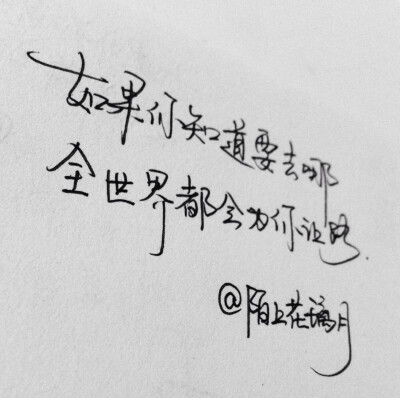 如果你知道要去哪
全世界都会为你让路.
@陌上花璃月